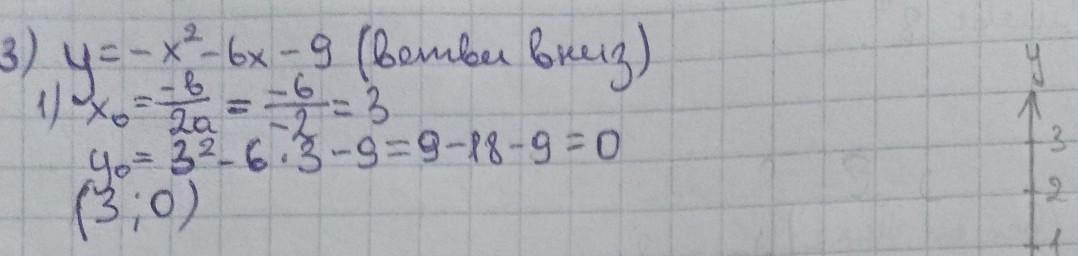 3) y = -x² - 6x - 9 (ветви вниз)
1) x₀ = -b/2a = -6/-2 = 3
y₀ = 3² - 6 · 3 - 9 = 9 - 18 - 9 = 0
(3 ; 0)
y
3
2
1